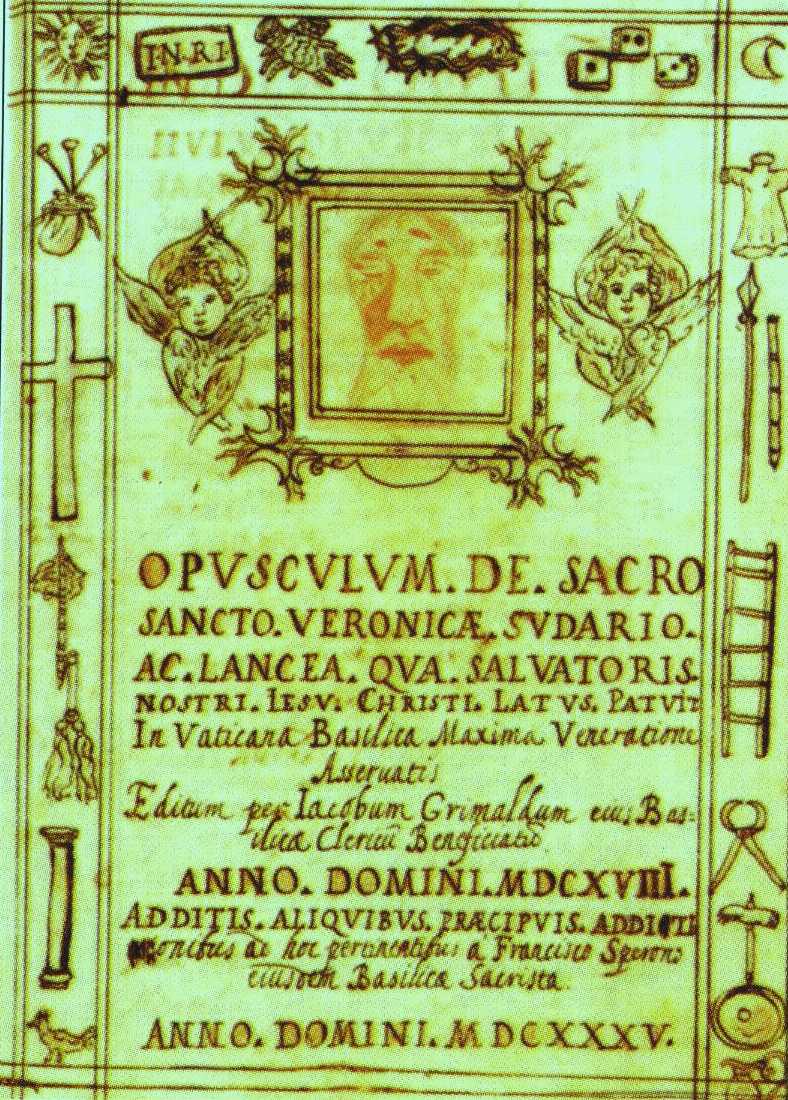 I·N·RI
OPVSCVLVM. DE. SACRO
SANCTO. VERONICÆ. SVDARIO.
AC. LANCEA. QVA. SALVATORIS.
NOSTRI. IESV. CHRISTI. LATVS. PATVIT
In Vaticana Basilica Maxima Veneratione
Asseruatis
Editum per Iacobum Grimaldum eius Bas-
ilicæ Clericū Beneficiatū
ANNO. DOMINI. MDCXVIII.
ADDITIS. ALIQVIBVS. PRÆCIPVIS. ADDITI
onibus ad hoc pertinentibus a Francisco Sperono
eiusdem Basilicæ Sacrista.
ANNO. DOMINI. MDCXXXV.